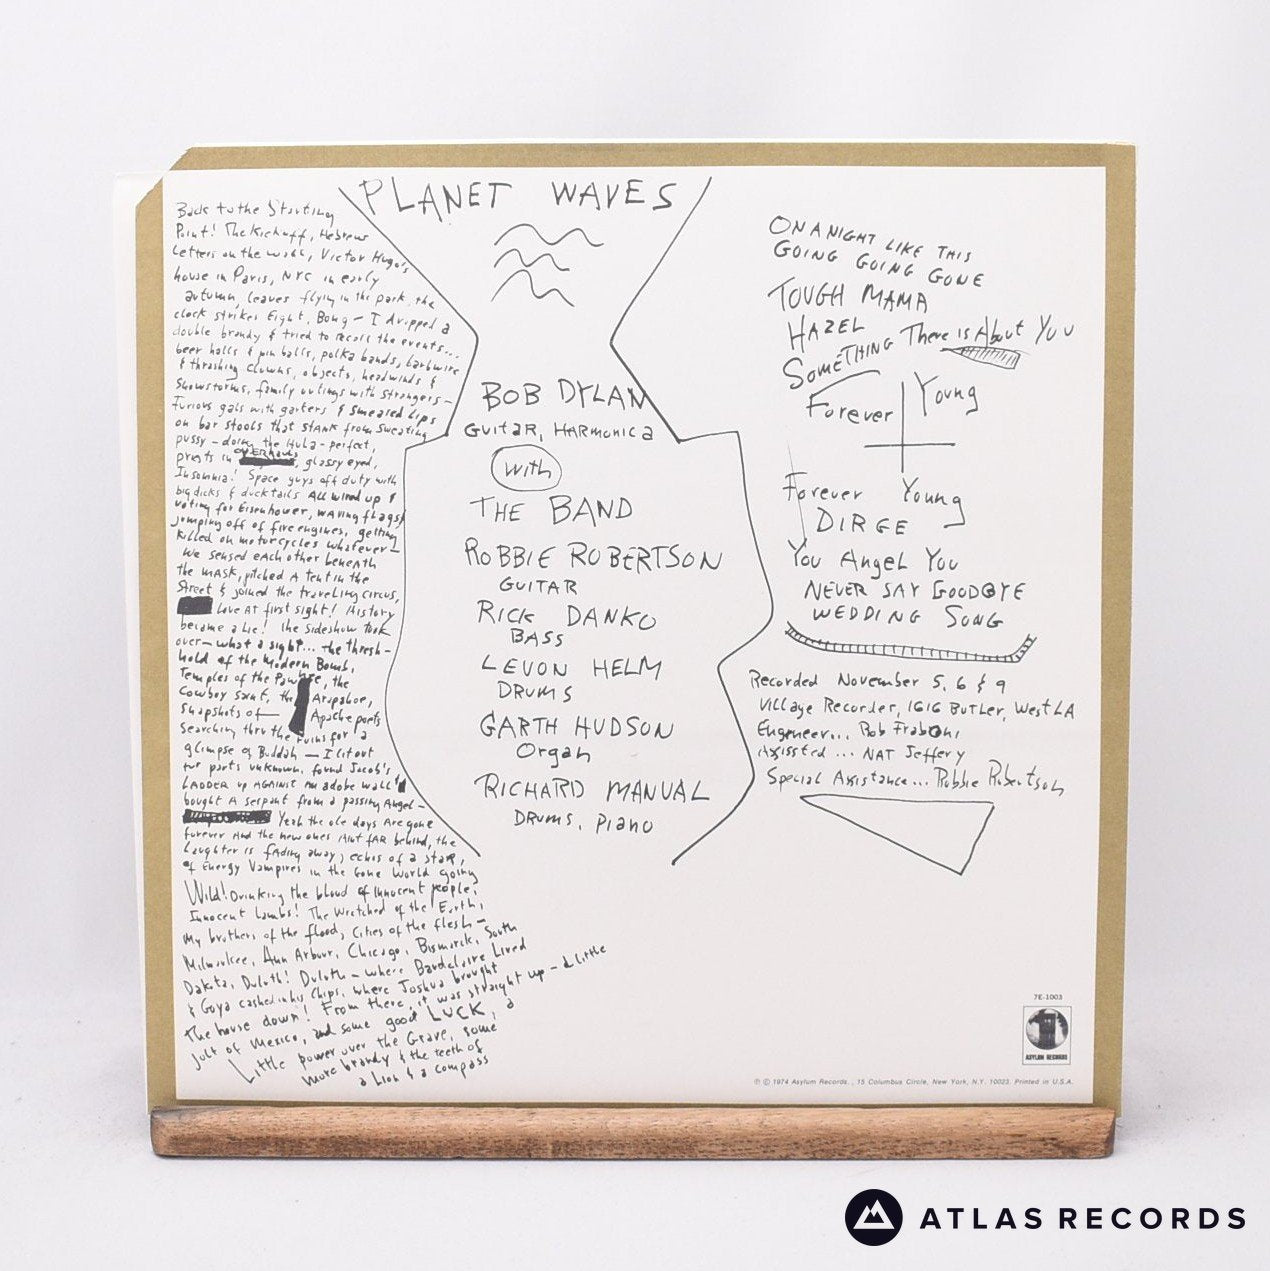 Back to the Starting
Point! The Kickoff, Hebrew
Letters on the wall, Victor Hugo's
house in Paris, NYC in early
autumn, leaves flying in the park, the
clock strikes Eight, Bong - I dropped a
double brandy & tried to recall the events...
beer halls & pin balls, polka bands, barbwire
& thrashing clowns, objects, headwinds &
Snowstorms, family outings with strangers -
Furious gals with garters & smeared Lips
on bar stools that stank from sweating
pussy - doing the Hula - perfect,
priests in overhauls, glassy eyed,
Insomnia! Space guys off duty with
big dicks & duck tails All wired up &
voting for Eisenhower, waving flags &
jumping off of fire engines, getting
killed on motorcycles whatever -
We sensed each other beneath
the mask, pitched a tent in the
Street & joined the traveling circus,
Love at first sight! History
became a Lie! the sideshow took
over - what a sight... the thresh-
hold of the Modern Bomb,
Temples of the Pawnee, the
Cowboy saint, the Arapahoe,
Snapshots of Apache poets
searching thru the ruins for a
glimpse of Buddah - I lit out
for parts unknown, found Jacob's
Ladder up against an adobe wall &
bought a serpent from a passing Angel -
Yeah the ole days Are gone
forever And the new ones Aint fAR behind, the
Laughter is fading away, echos of a staR,
of Energy Vampires in the Gone World going
Wild! Drinking the blood of innocent people,
Innocent Lambs! The Wretched of the Earth,
My brothers of the flood, Cities of the flesh -
Milwaukee, Ann Arbour, Chicago, Bismarck, South
Dakota, Duluth! Duluth - where Baudelaire Lived
& Goya cashed in his Chips, where Joshua brought
the house down! From there, it was straight up - a Little
jolt of Mexico, and some good LUCK, a
Little power over the Grave, some
more brandy & the teeth of
a Lion & a compass
PLANET WAVES
BOB DYLAN
GUITAR, HARMONICA
with
THE BAND
ROBBIE ROBERTSON
GUITAR
RICK DANKO
BASS
LEVON HELM
DRUMS
GARTH HUDSON
Organ
RICHARD MANUAL
DRUMS, PIANO
ON A NIGHT LIKE THIS
GOING GOING GONE
TOUGH MAMA
HAZEL
SOMETHING There is About You
Forever Young
Forever Young
DIRGE
You Angel You
NEVER SAY GOODBYE
WEDDING SONG
Recorded November 5, 6 & 9
Village Recorder, 1616 BUTLER, West LA
Engeneer... Rob Fraboni
Assissted... NAT Jeffery
Special Assistance... Robbie Robertson
7E-1003
ASYLUM RECORDS
℗ © 1974 Asylum Records., 15 Columbus Circle, New York, N.Y. 10023. Printed in U.S.A.
ATLAS RECORDS